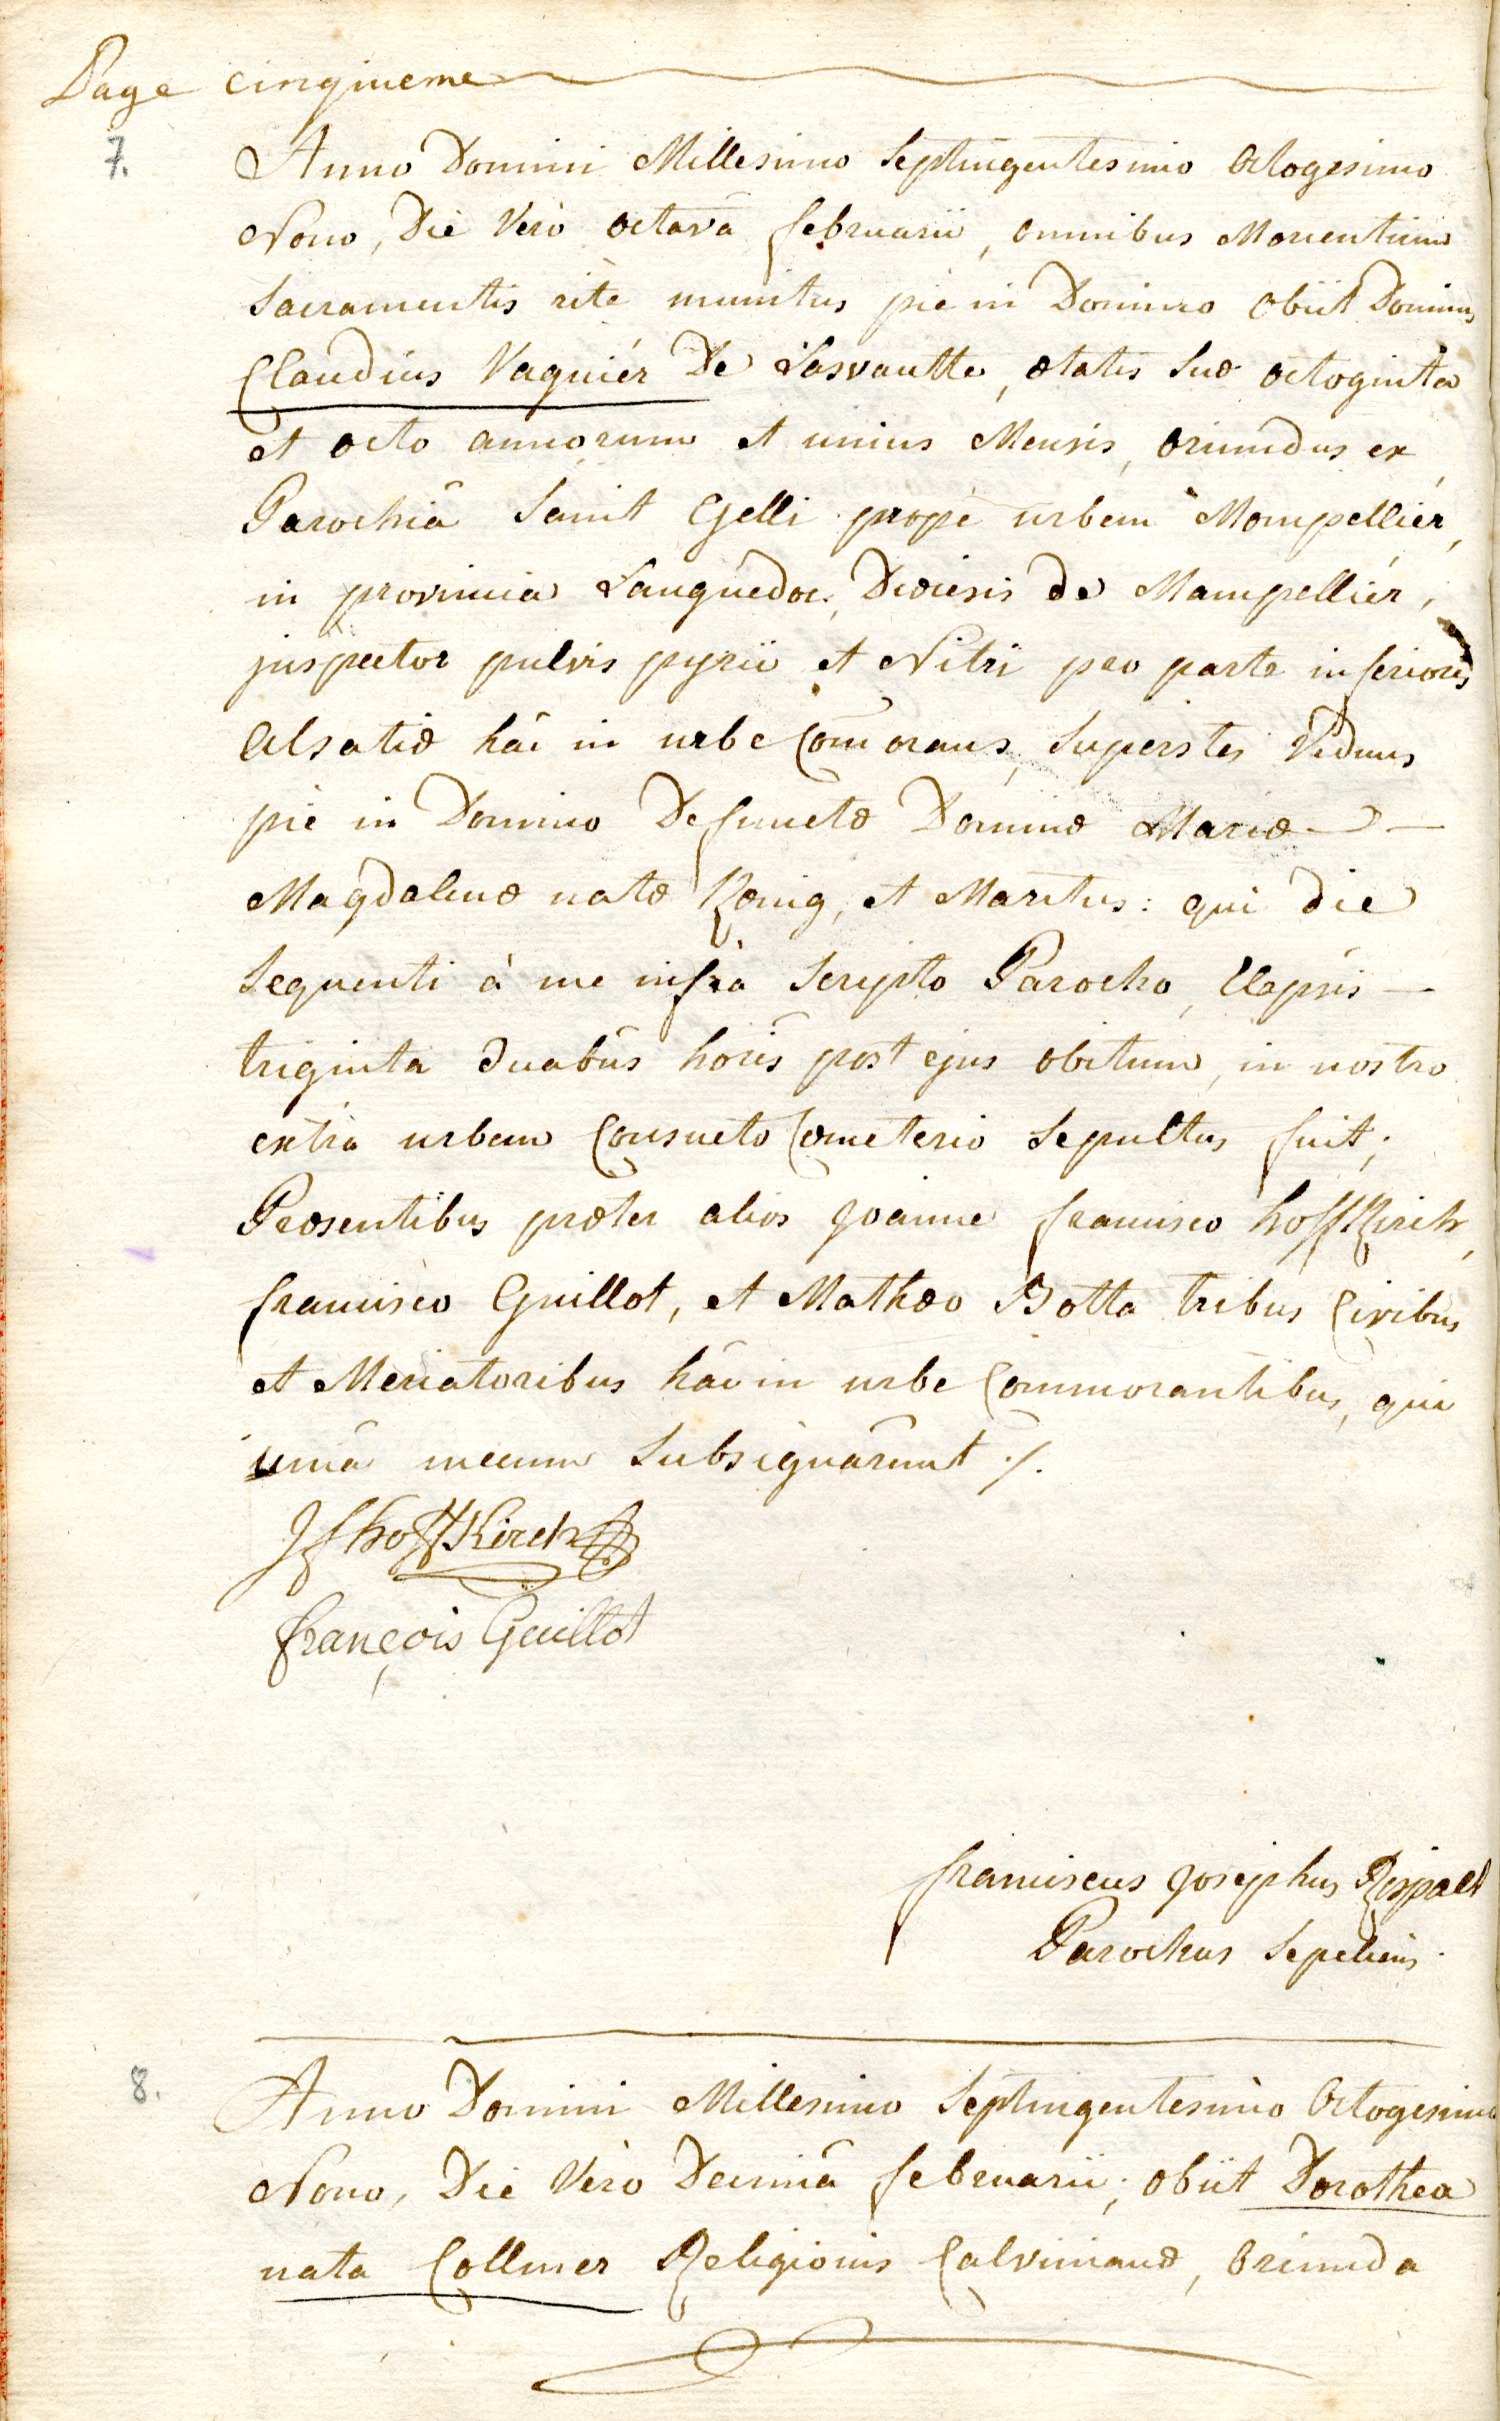 Page cinqiueme
7.
Anno Domini Millesimo Septingentesimo Octogesimo
Nono, Die Verò octavâ februarii, omnibus Morientium
Sacramentis ritè munitus piè in Domino obiit Dominus
Claudius Vaguiér De Lasvautte, ætatis suæ octoginta
et octo annorum et unius Mensis, oriundus ex
Parochiâ Saint Gelli propè urbem Mompelliér,
in provincia Languedoc, Diœcesis de Mampelliér,
juspector pulvis pyrii et Nitri pro parte inferioris
Alsatiæ hâc in urbe Com̄orans, superstes Viduus
piè in Domino Defunctæ Dominæ Mariæ —
Magdalenæ natæ Kœnig, et Maritus: qui die
sequenti à me infrà Scripto Parocho, Elapsis —
triginta duabus horis post ejus obitum, in nostro
extra urbem Consueto Cœmeterio sepultus fuit;
Præsentibus præter alios Joanne francisco hoffKirch,
francisco Guillot, et Mathæo Botta tribus Civibus
et Mercatoribus hâc in urbe Commorantibus, qui
unâ mecum subsignârunt ./.
Jf hoffKirch
françois Guillot
franciscus Josephus Rispalt
Parochus Sepeliens.
8.
Anno Domini Millesimo Septingentesimo Octogesimo
Nono, Die Verò Decimâ februarii; obiit Dorothea
nata Collmer Religionis Calvinianæ, Oriunda